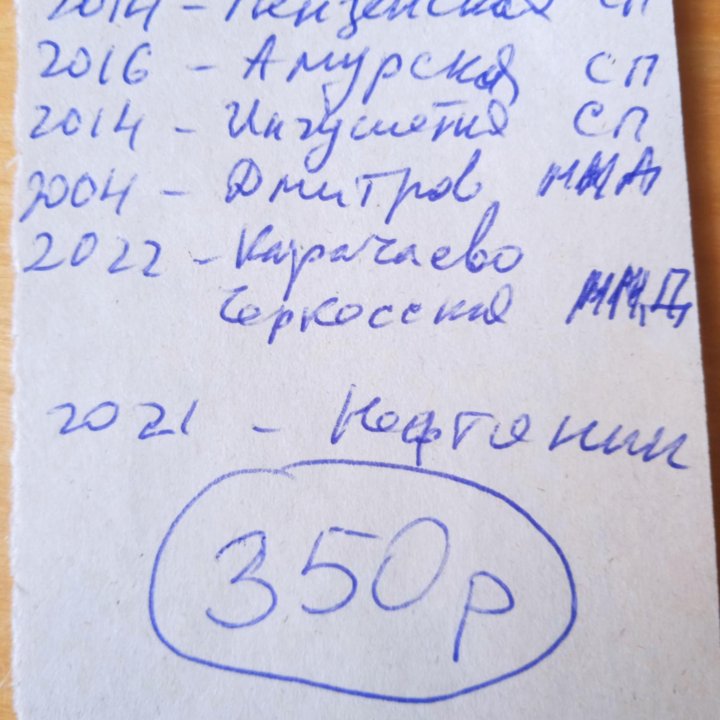 2014 - Пензенская СП
2016 - Амурская СП
2014 - Ингушетия СП
2004 - Дмитров ММД
2022 - Карачаево
Черкесская ММД
2021 - Нефтяник
350р